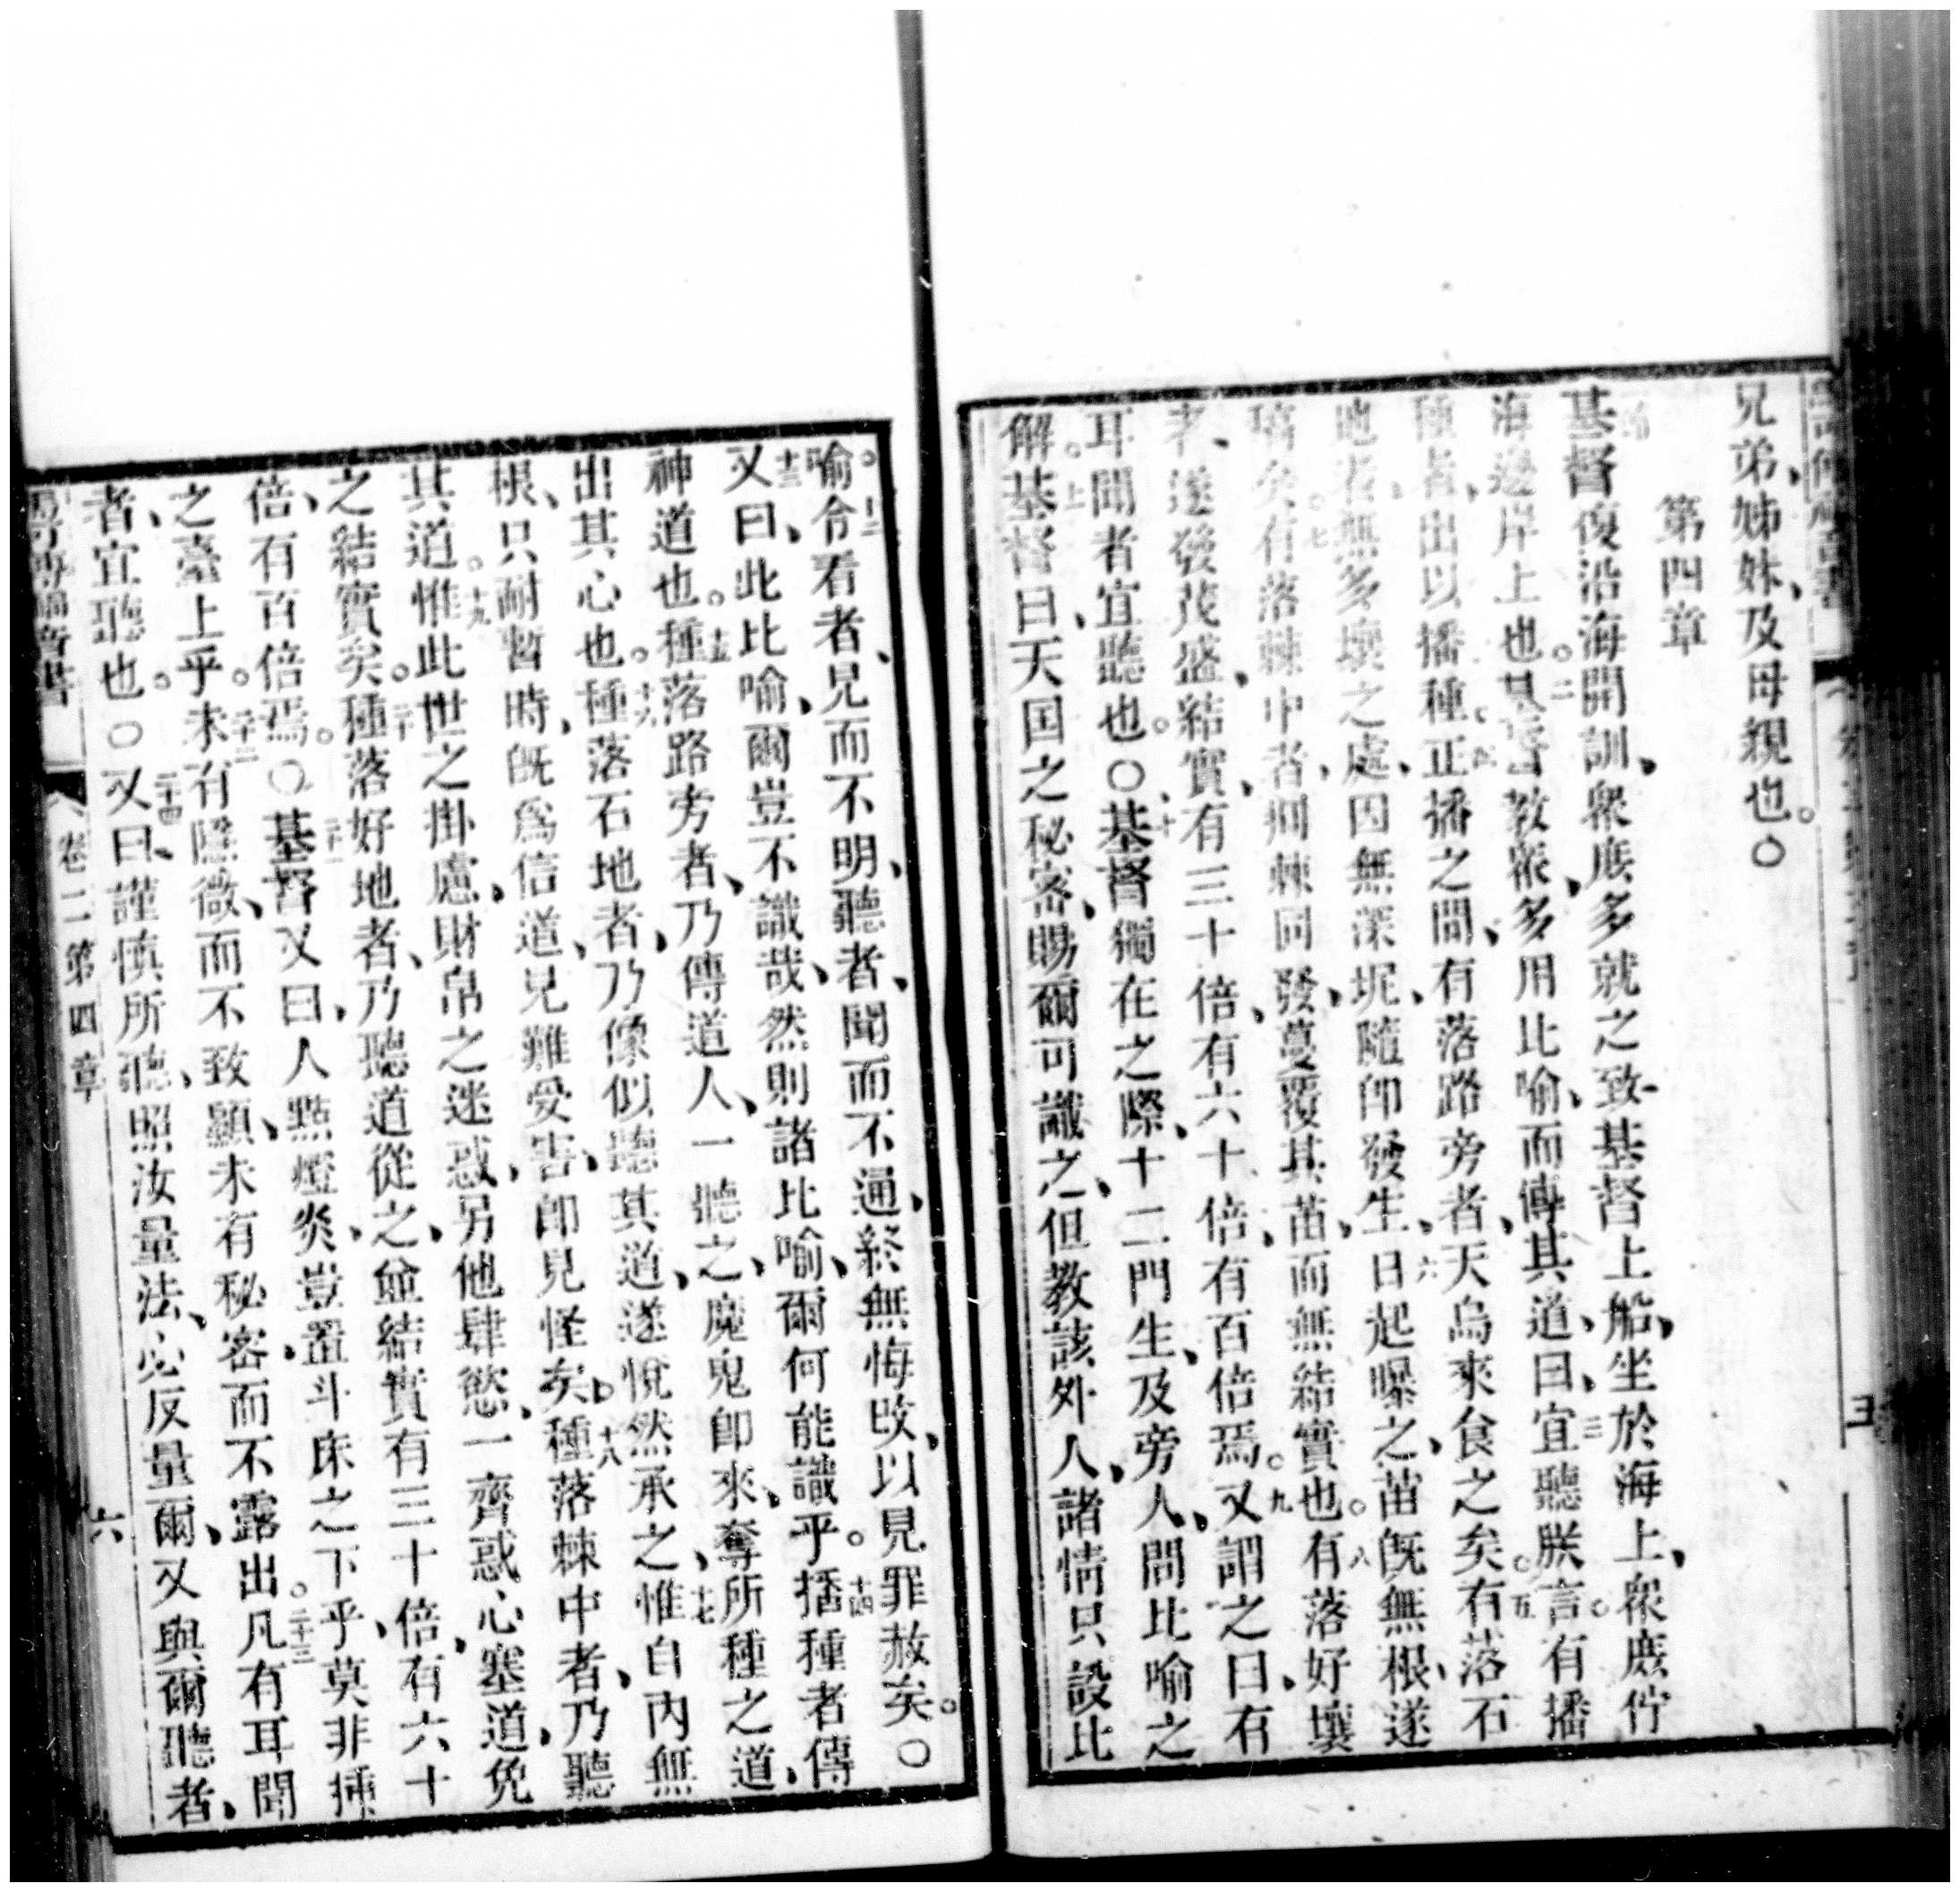 兄弟、姊妹、及母親也。〇
第四章
基督復沿海開訓、衆庶多就之、致基督上船、坐於海上、衆庶佇
海邊岸上也。二基督教衆、多用比喻、而傳其道、曰、三宜聽朕言。有播
種者、出以播種。四正播之間、有落路旁者、天鳥來食之矣。五有落石
地者、無多壤之處、因無深坭、隨卽發生、六日起曝之、苗旣無根、遂
稿矣。七有落棘中者、荆棘同發、蔓覆其苗、而無結實也。八有落好壤
者、遂發茂盛、結實、有三十倍、有六十倍、有百倍焉。九又謂之曰、有
耳聞者宜聽也。〇十基督獨在之際、十二門生、及旁人、問比喻之
解。十一基督曰、天国之秘密、賜爾可識之、但教該外人、諸情只設比
喻。十二令看者、見而不明、聽者、聞而不通、終無悔改、以見罪赦矣。〇
十三又曰、此比喻、爾豈不識哉、然則諸比喻、爾何能識乎。十四播種者傳
神道也。十五種落路旁者、乃傳道人、一聽之、魔鬼卽來、奪所種之道、
出其心也。十六種落石地者、乃像似聽其道、遂悅然承之、十七惟自內無
根、只耐暫時、旣爲信道、見難受害、卽見怪矣。十八種落棘中者、乃聽
其道。十九惟此世之掛慮、財帛之迷惑、另他肆慾、一齊惑心塞道、免
之結實矣。二十種落好地者、乃聽道從之、並結實有三十倍、有六十
倍、有百倍焉。〇二十一基督又曰、人點燈炎、豈置斗床之下乎、莫非揷
之臺上乎。二十二未有隱微、而不致顯、未有秘密、而不露出。二十三凡有耳聞
者、宜聽也。〇二十四又曰、謹慎所聽、照汝量法、必反量爾、又與爾聽者、
卷二第四章
六